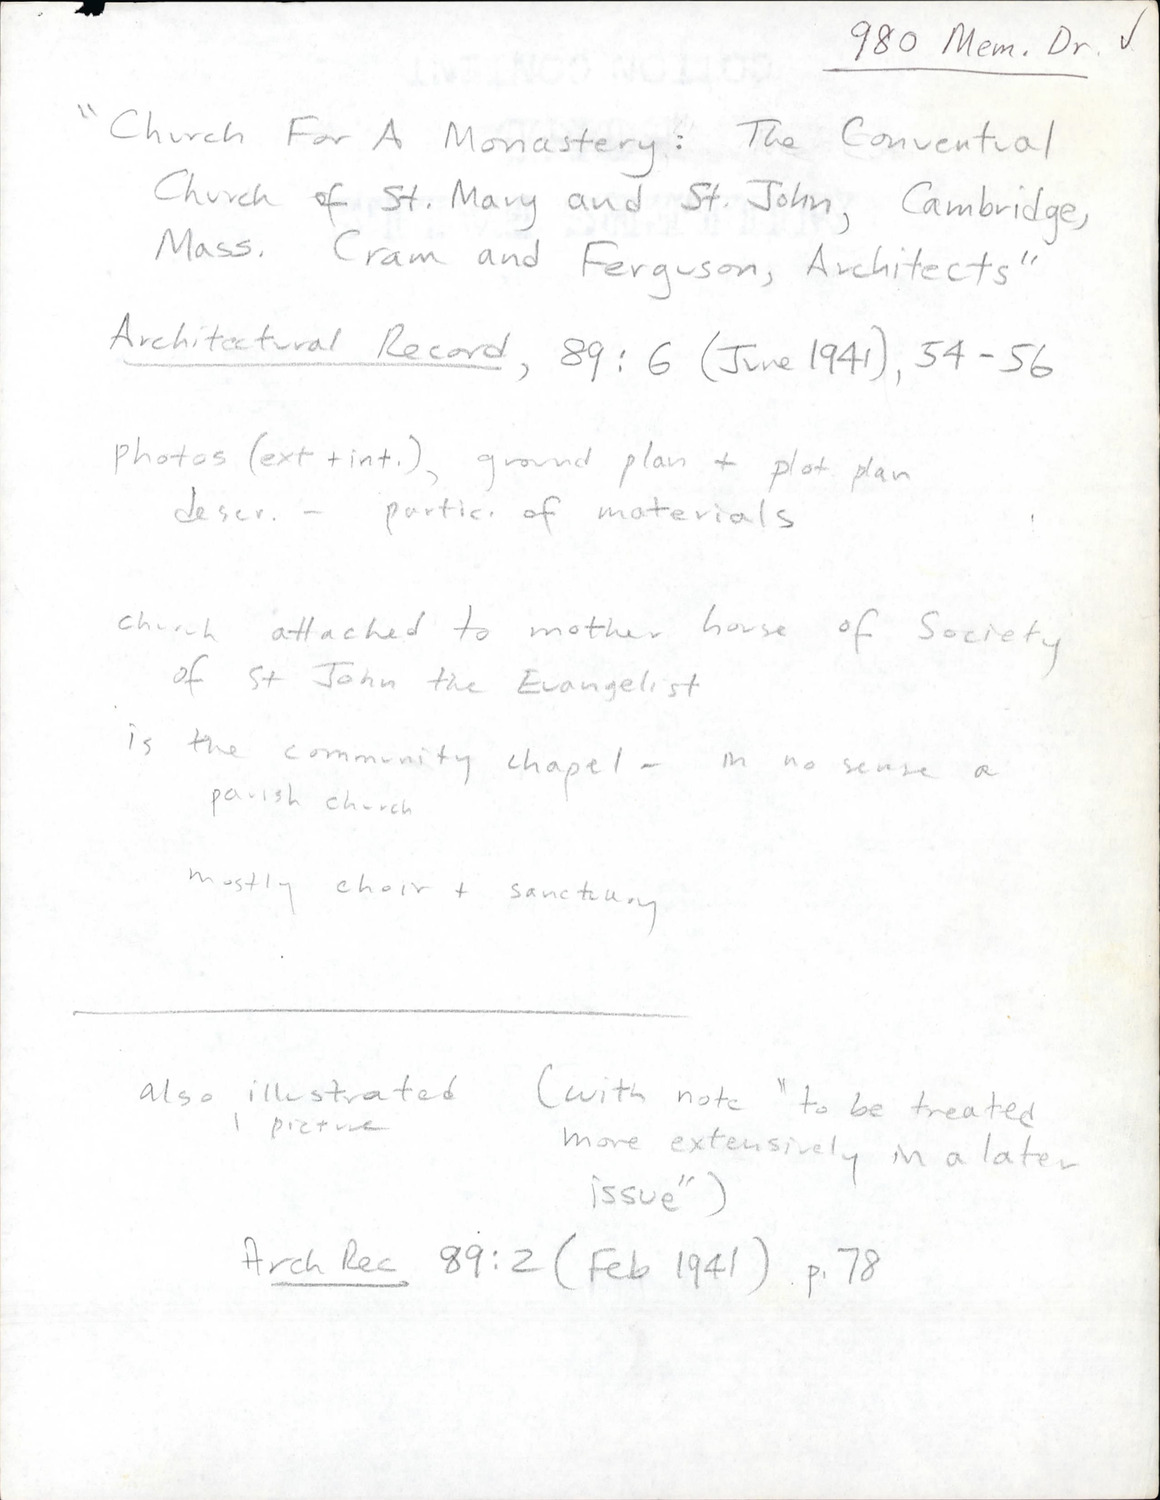 980 Mem. Dr. ✓
"Church For A Monastery: The Conventual
Church of St. Mary and St. John, Cambridge,
Mass. Cram and Ferguson, Architects"
Architectural Record, 89:6 (June 1941), 54-56
photos (ext + int.), ground plan + plot plan
descr. - partic. of materials
church attached to mother house of Society
of St John the Evangelist
is the community chapel - in no sense a
parish church
mostly choir + sanctuary
also illustrated (with note "to be treated
1 picture more extensively in a later
issue")
Arch Rec 89:2 (Feb 1941) p. 78